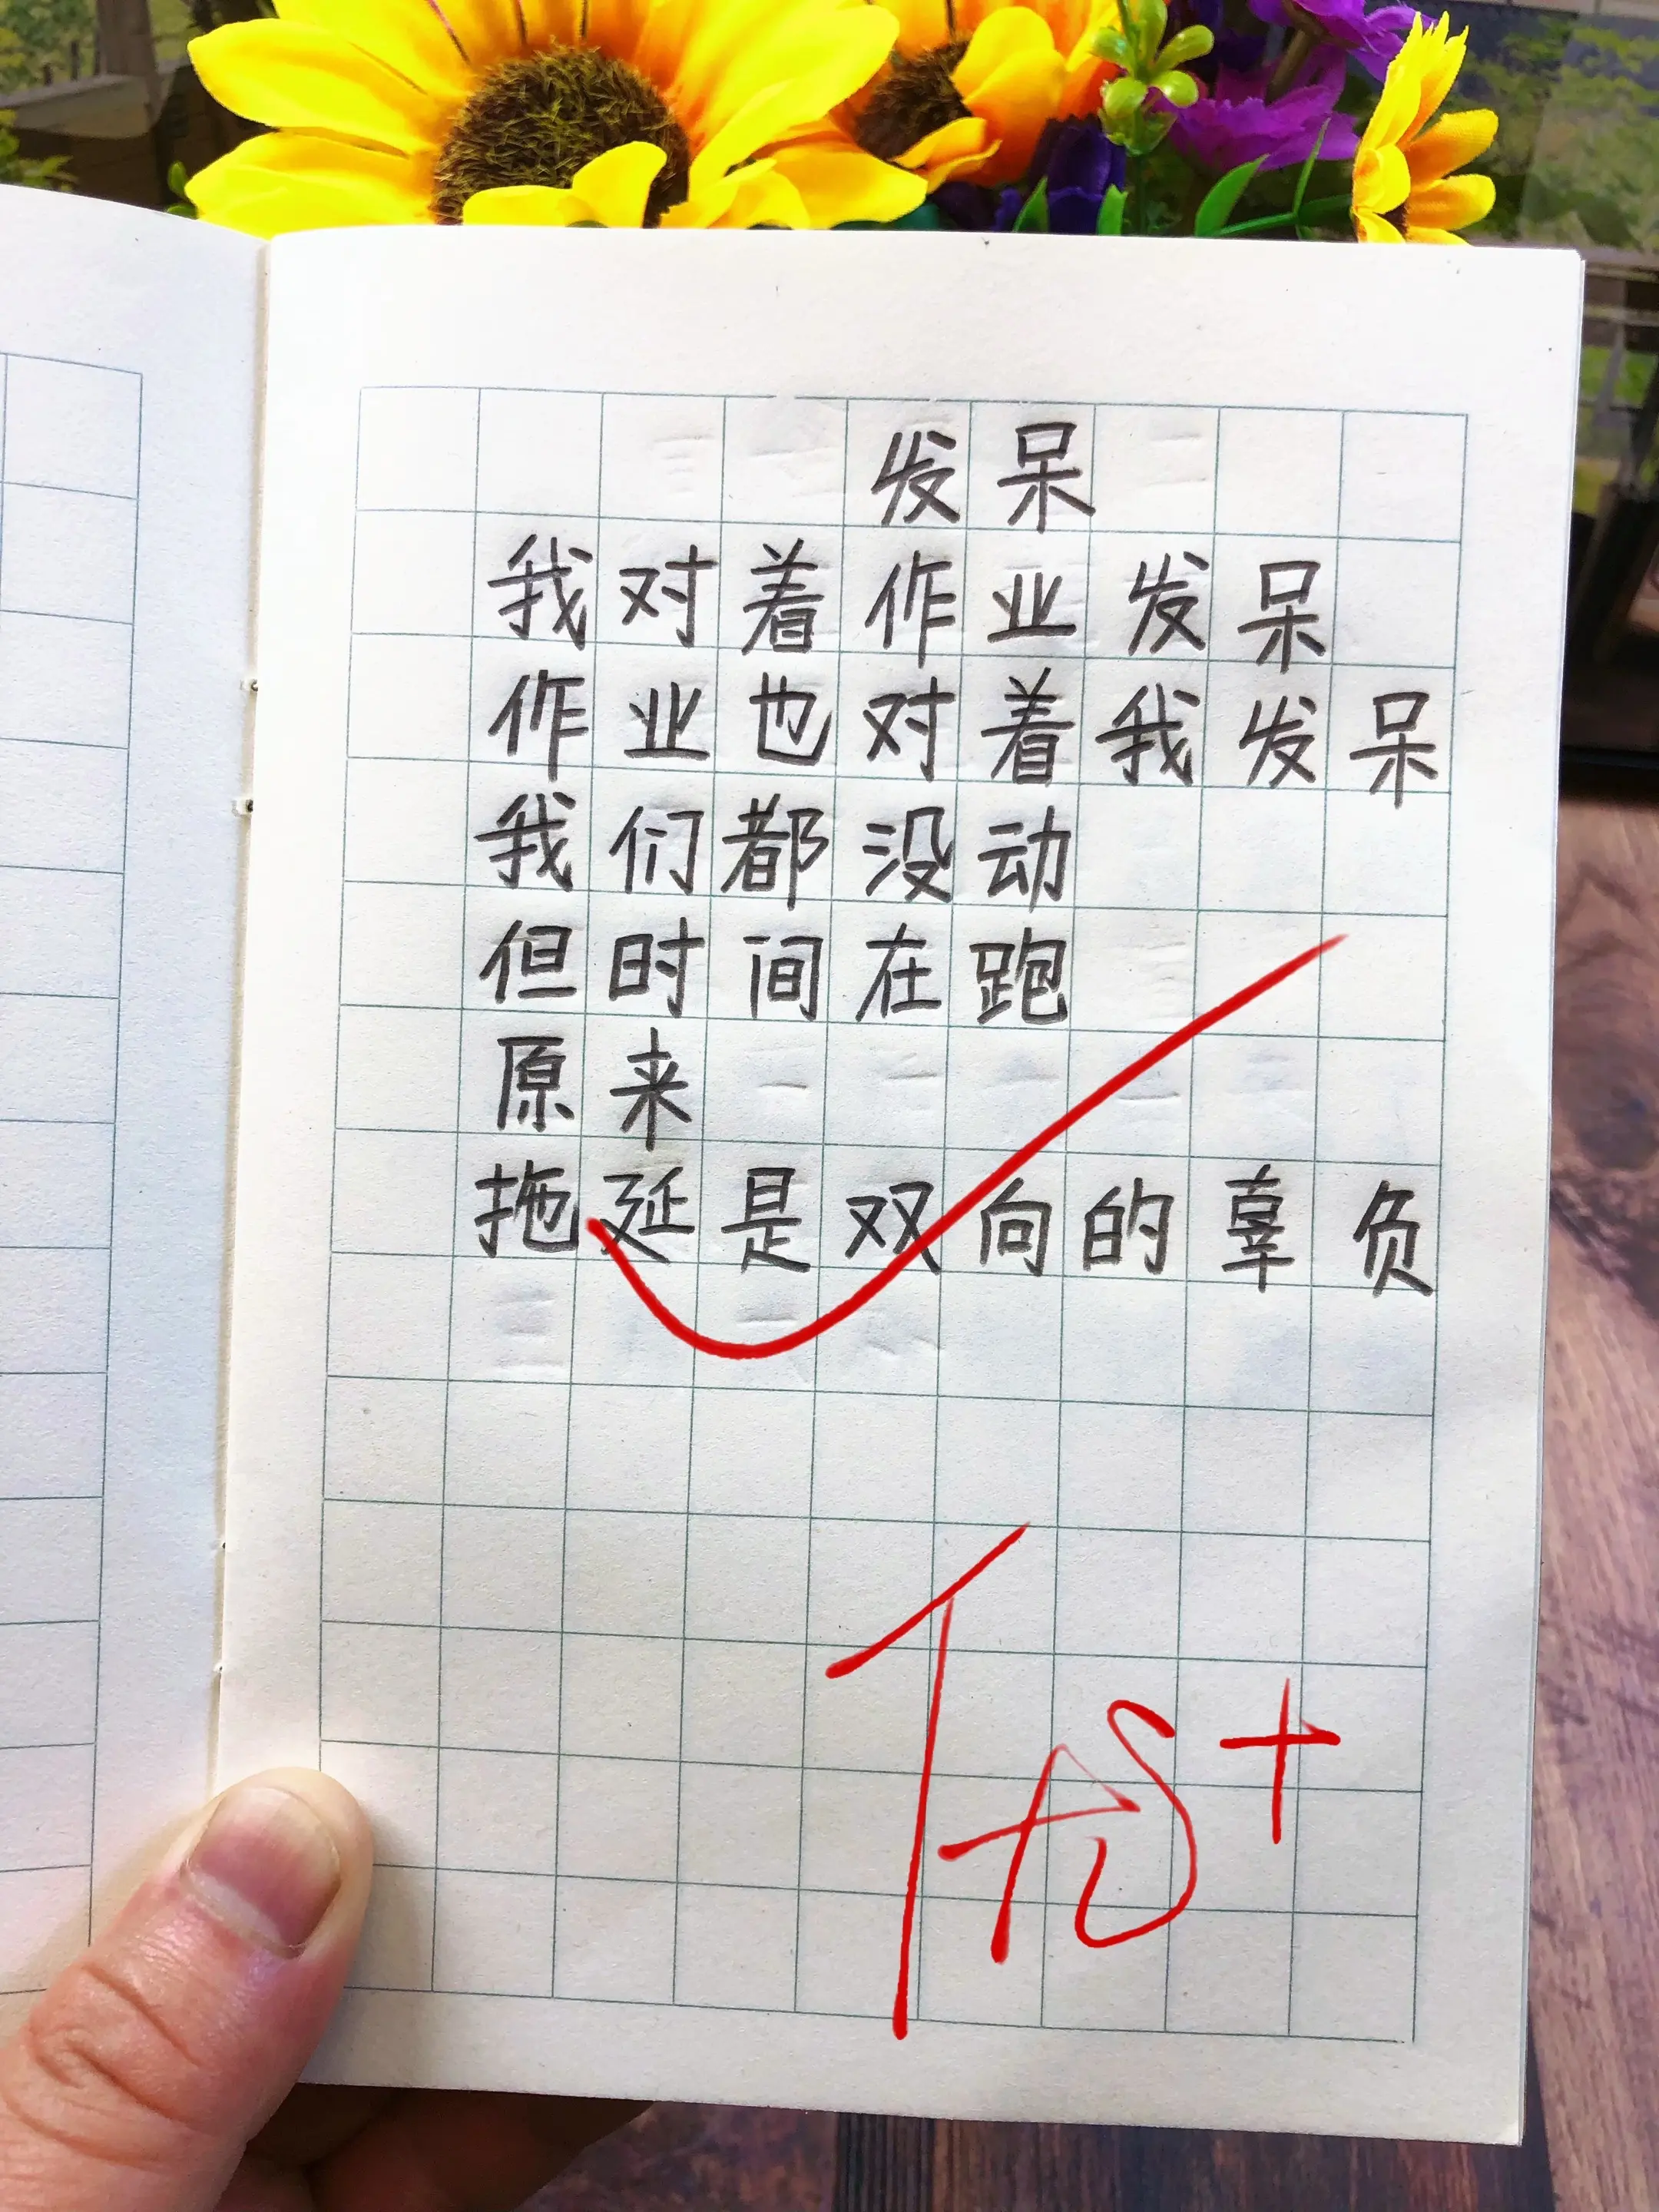 发呆
我对着作业发呆
作业也对着我发呆
我们都没动
但时间在跑
原来
拖延是双向的辜负